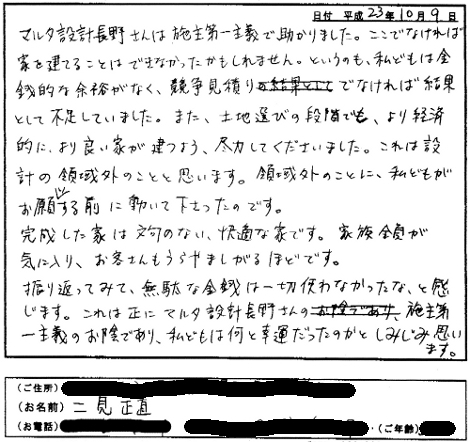 日付 平成23年10月9日
マルタ設計長野さんは施主第一主義で助かりました。ここでなければ
家を建てることはできなかったかもしれません。というのも、私どもは金
銭的な余裕がなく、競争見積りの結果としてでなければ結果
として不足していました。また、土地選びの段階でも、より経済
的に、より良い家が建つよう、尽力してくださいました。これは設
計の領域外のことと思います。領域外のことに、私どもが
お願いする前に動いて下さったのです。
完成した家は文句のない、快適な家です。家族全員が
気に入り、お客さんもうらやましがるほどです。
振り返ってみて、無駄な金銭は一切使わなかったな、と感
じます。これは正にマルタ設計長野さんのお陰であり、施主第
一主義のお陰であり、私どもは何と幸運だったのかとしみじみ思い
ます。
(ご住所)
(お名前) 二見正直
(お電話) ・(ご年齢)